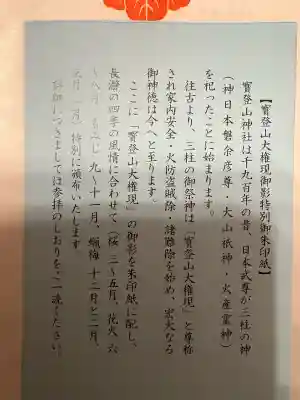 【寶登山大権現御影特別御朱印紙】
寶登山神社は千九百年の昔、日本武尊が三柱の神
（神日本磐余彦尊・大山祇神・火産霊神）
を祀ったことに始まります。
往古より、三柱の御祭神は「寶登山大権現」と尊称
され家内安全・火防盗賊除・諸難除を始め、宏大なる
御神徳は今へと至ります。
ここに「寶登山大権現」の御影を朱印紙に配し、
長瀞の四季の風情に合わせて（桜 三～五月、花火 六
～八月、もみじ 九～十一月、蝋梅 十二月と二月、
一月）特別に頒布いたします。
詳細につきましては参拝のしおりをご一読ください。